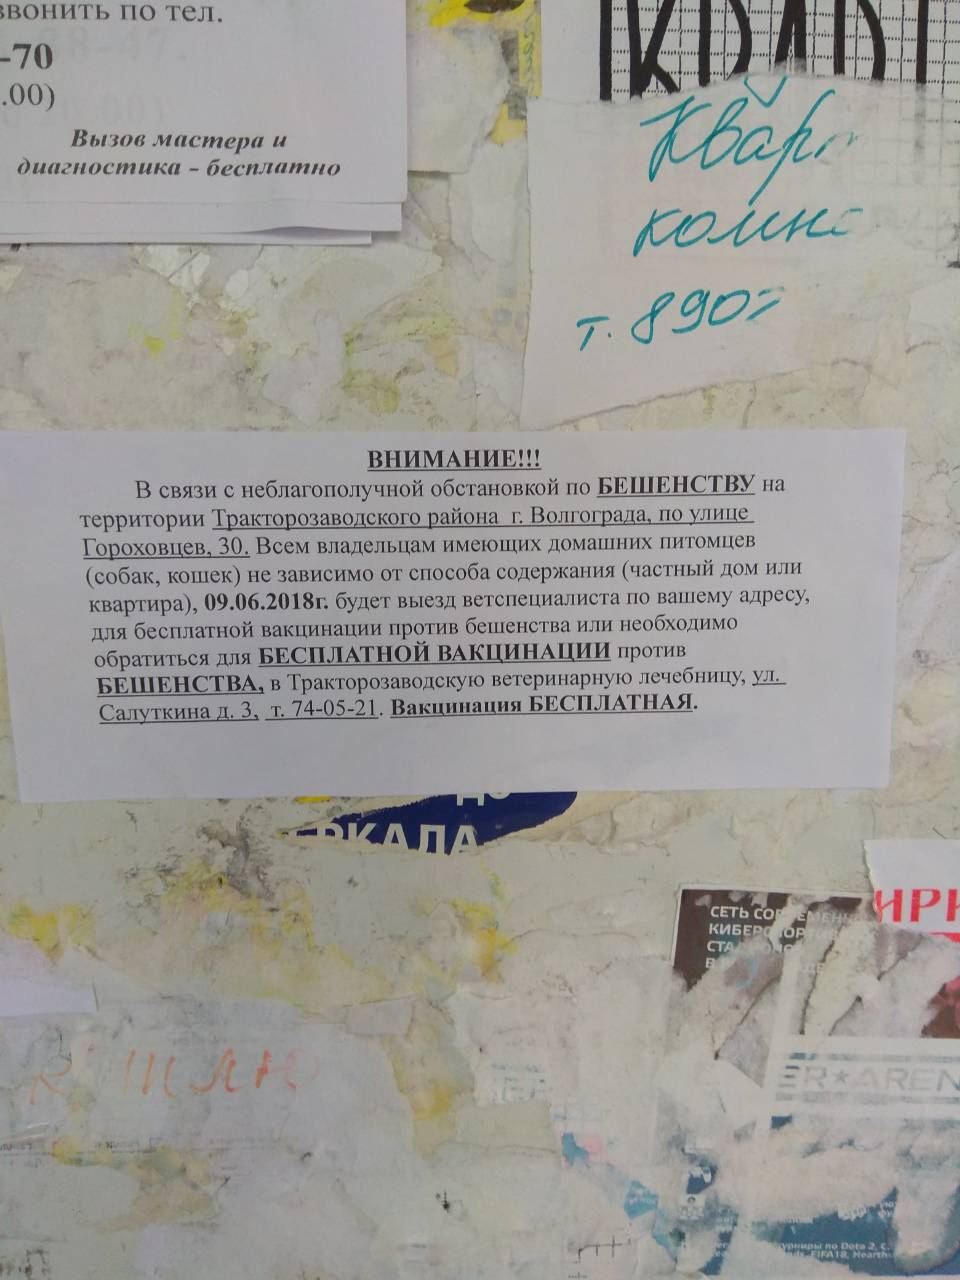 звонить по тел.
-70
.00)
Вызов мастера и
диагностика - бесплатно
т. 890
ВНИМАНИЕ!!!
В связи с неблагополучной обстановкой по БЕШЕНСТВУ на
территории Тракторозаводского района г. Волгограда, по улице
Гороховцев, 30. Всем владельцам имеющих домашних питомцев
(собак, кошек) не зависимо от способа содержания (частный дом или
квартира), 09.06.2018г. будет выезд ветспециалиста по вашему адресу,
для бесплатной вакцинации против бешенства или необходимо
обратиться для БЕСПЛАТНОЙ ВАКЦИНАЦИИ против
БЕШЕНСТВА, в Тракторозаводскую ветеринарную лечебницу, ул.
Салуткина д. 3, т. 74-05-21. Вакцинация БЕСПЛАТНАЯ.
ЕРКАЛА
СЕТЬ
ИРН
ER★AREN
урниры по Dota 2, C
FIFA18, Hearth